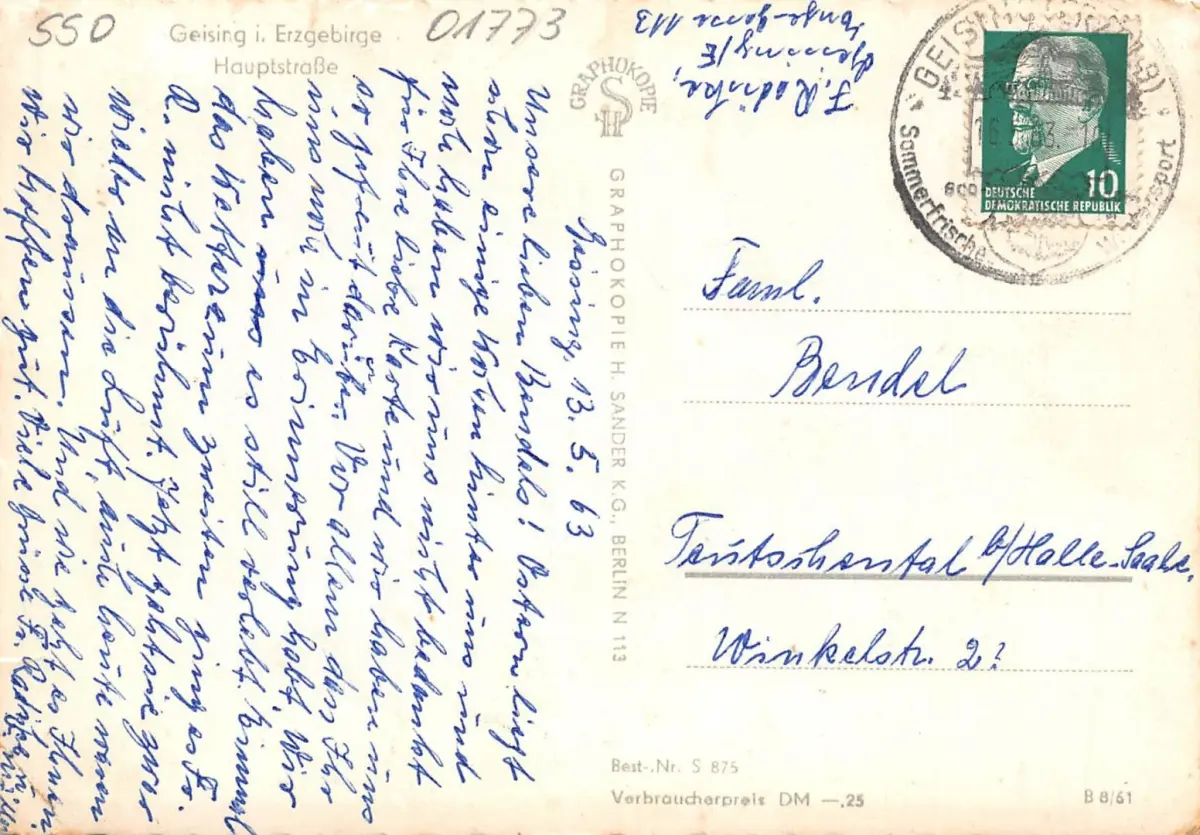 550
01773
Geising i. Erzgebirge
Hauptstraße
Geising, 13. 5. 63
Unsere lieben Bendels! Ostern liegt
schon einige Wochen hinter uns und
noch haben wir uns nicht bedankt
für Ihre liebe Karte und wir haben uns
so gefreut darüber. Vor allem das Ihr
uns noch in Erinnerung habt. Wir
haben es still verlebt. Einmal
das Wetter zum zweiten ging es Fr.
R. nicht berühmt. Jetzt geht sie zwar
wieder an die Luft, auch heute waren
wir draussen. Und wie geht es Ihnen
Wir hoffen gut. Viele Grüsse Fr. Radiske u.
GRAPHOKOPIE
SH
GRAPHOKOPIE H. SANDER K.G., BERLIN N 113
F. Radiske,
Geising/E
113
GEISING
Sommerfrische
Wintersport
DEUTSCHE
DEMOKRATISCHE REPUBLIK
10
Faml.
Bendel
Teutschental b/Halle-Saale.
Winkelstr. 2?
Best-.Nr. S 875
Verbraucherpreis DM —.25
B 8/61